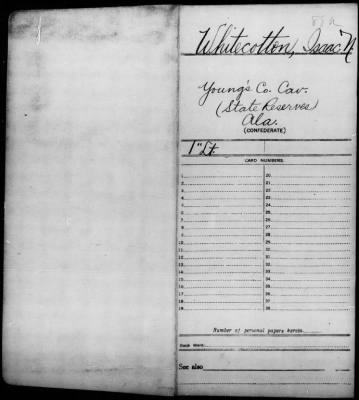 Whitecotton, Isaac N.
Young's Co. Cav.
(State Reserves)
Ala.
(CONFEDERATE)
1" Lt.
CARD NUMBERS.
1 20
2 21
3 22
4 23
5 24
6 25
7 26
8 27
9 28
10 29
11 30
12 31
13 32
14 33
15 34
16 35
17 36
18 37
19 38
Number of personal papers herein
Book Mark:
See also